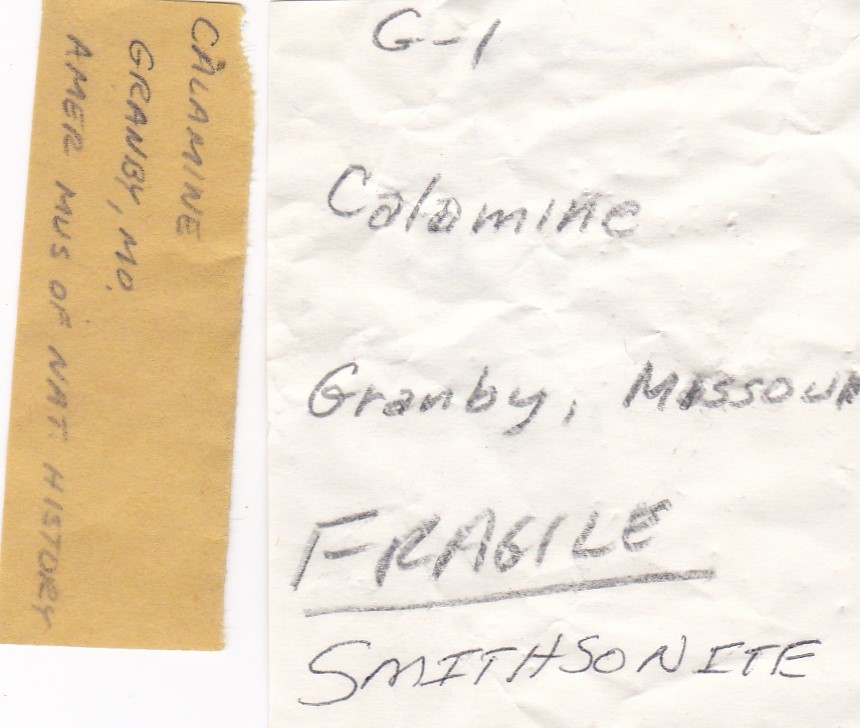 CALAMINE
GRANBY, MO.
AMER MUS OF NAT. HISTORY
G-1
Calamine
Granby, Missour
FRAGILE
SMITHSONITE